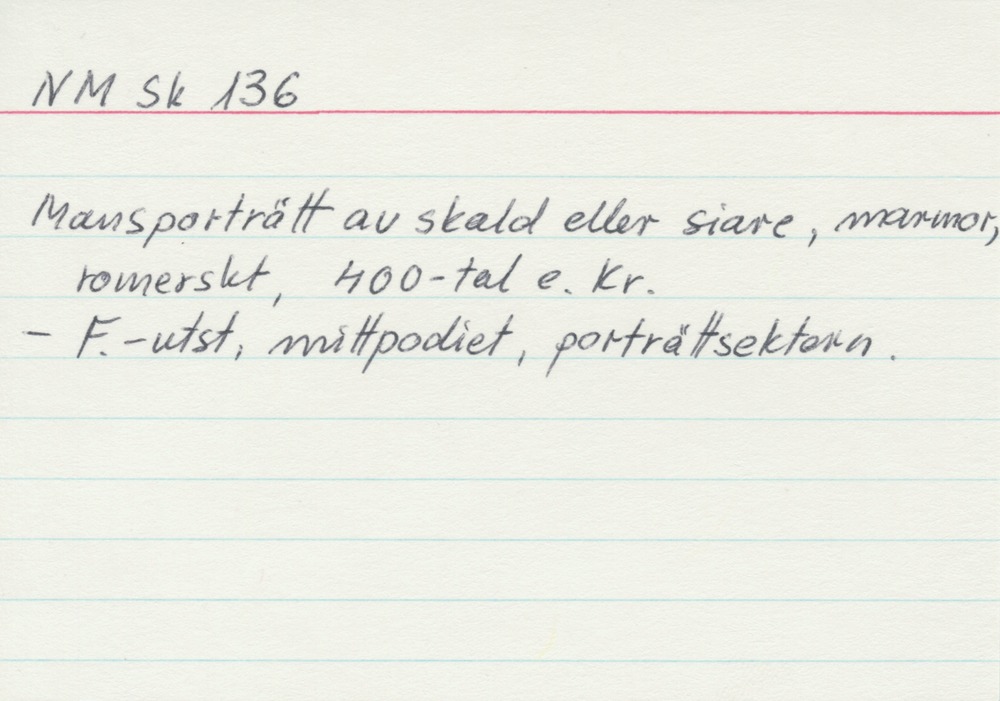 NM Sk 136
Mansporträtt av skald eller siare, marmor,
romerskt, 400-tal e. Kr.
- F.-utst, mittpodiet, porträttsektorn.